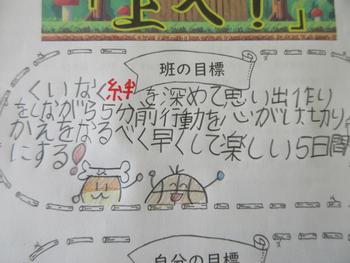 上へ！」
班の目標
くいなく絆を深めて思い出作り
をしながら5分前行動を心がけ切り
かえをなるべく早くして楽しい5日間
にする!
自分の目標